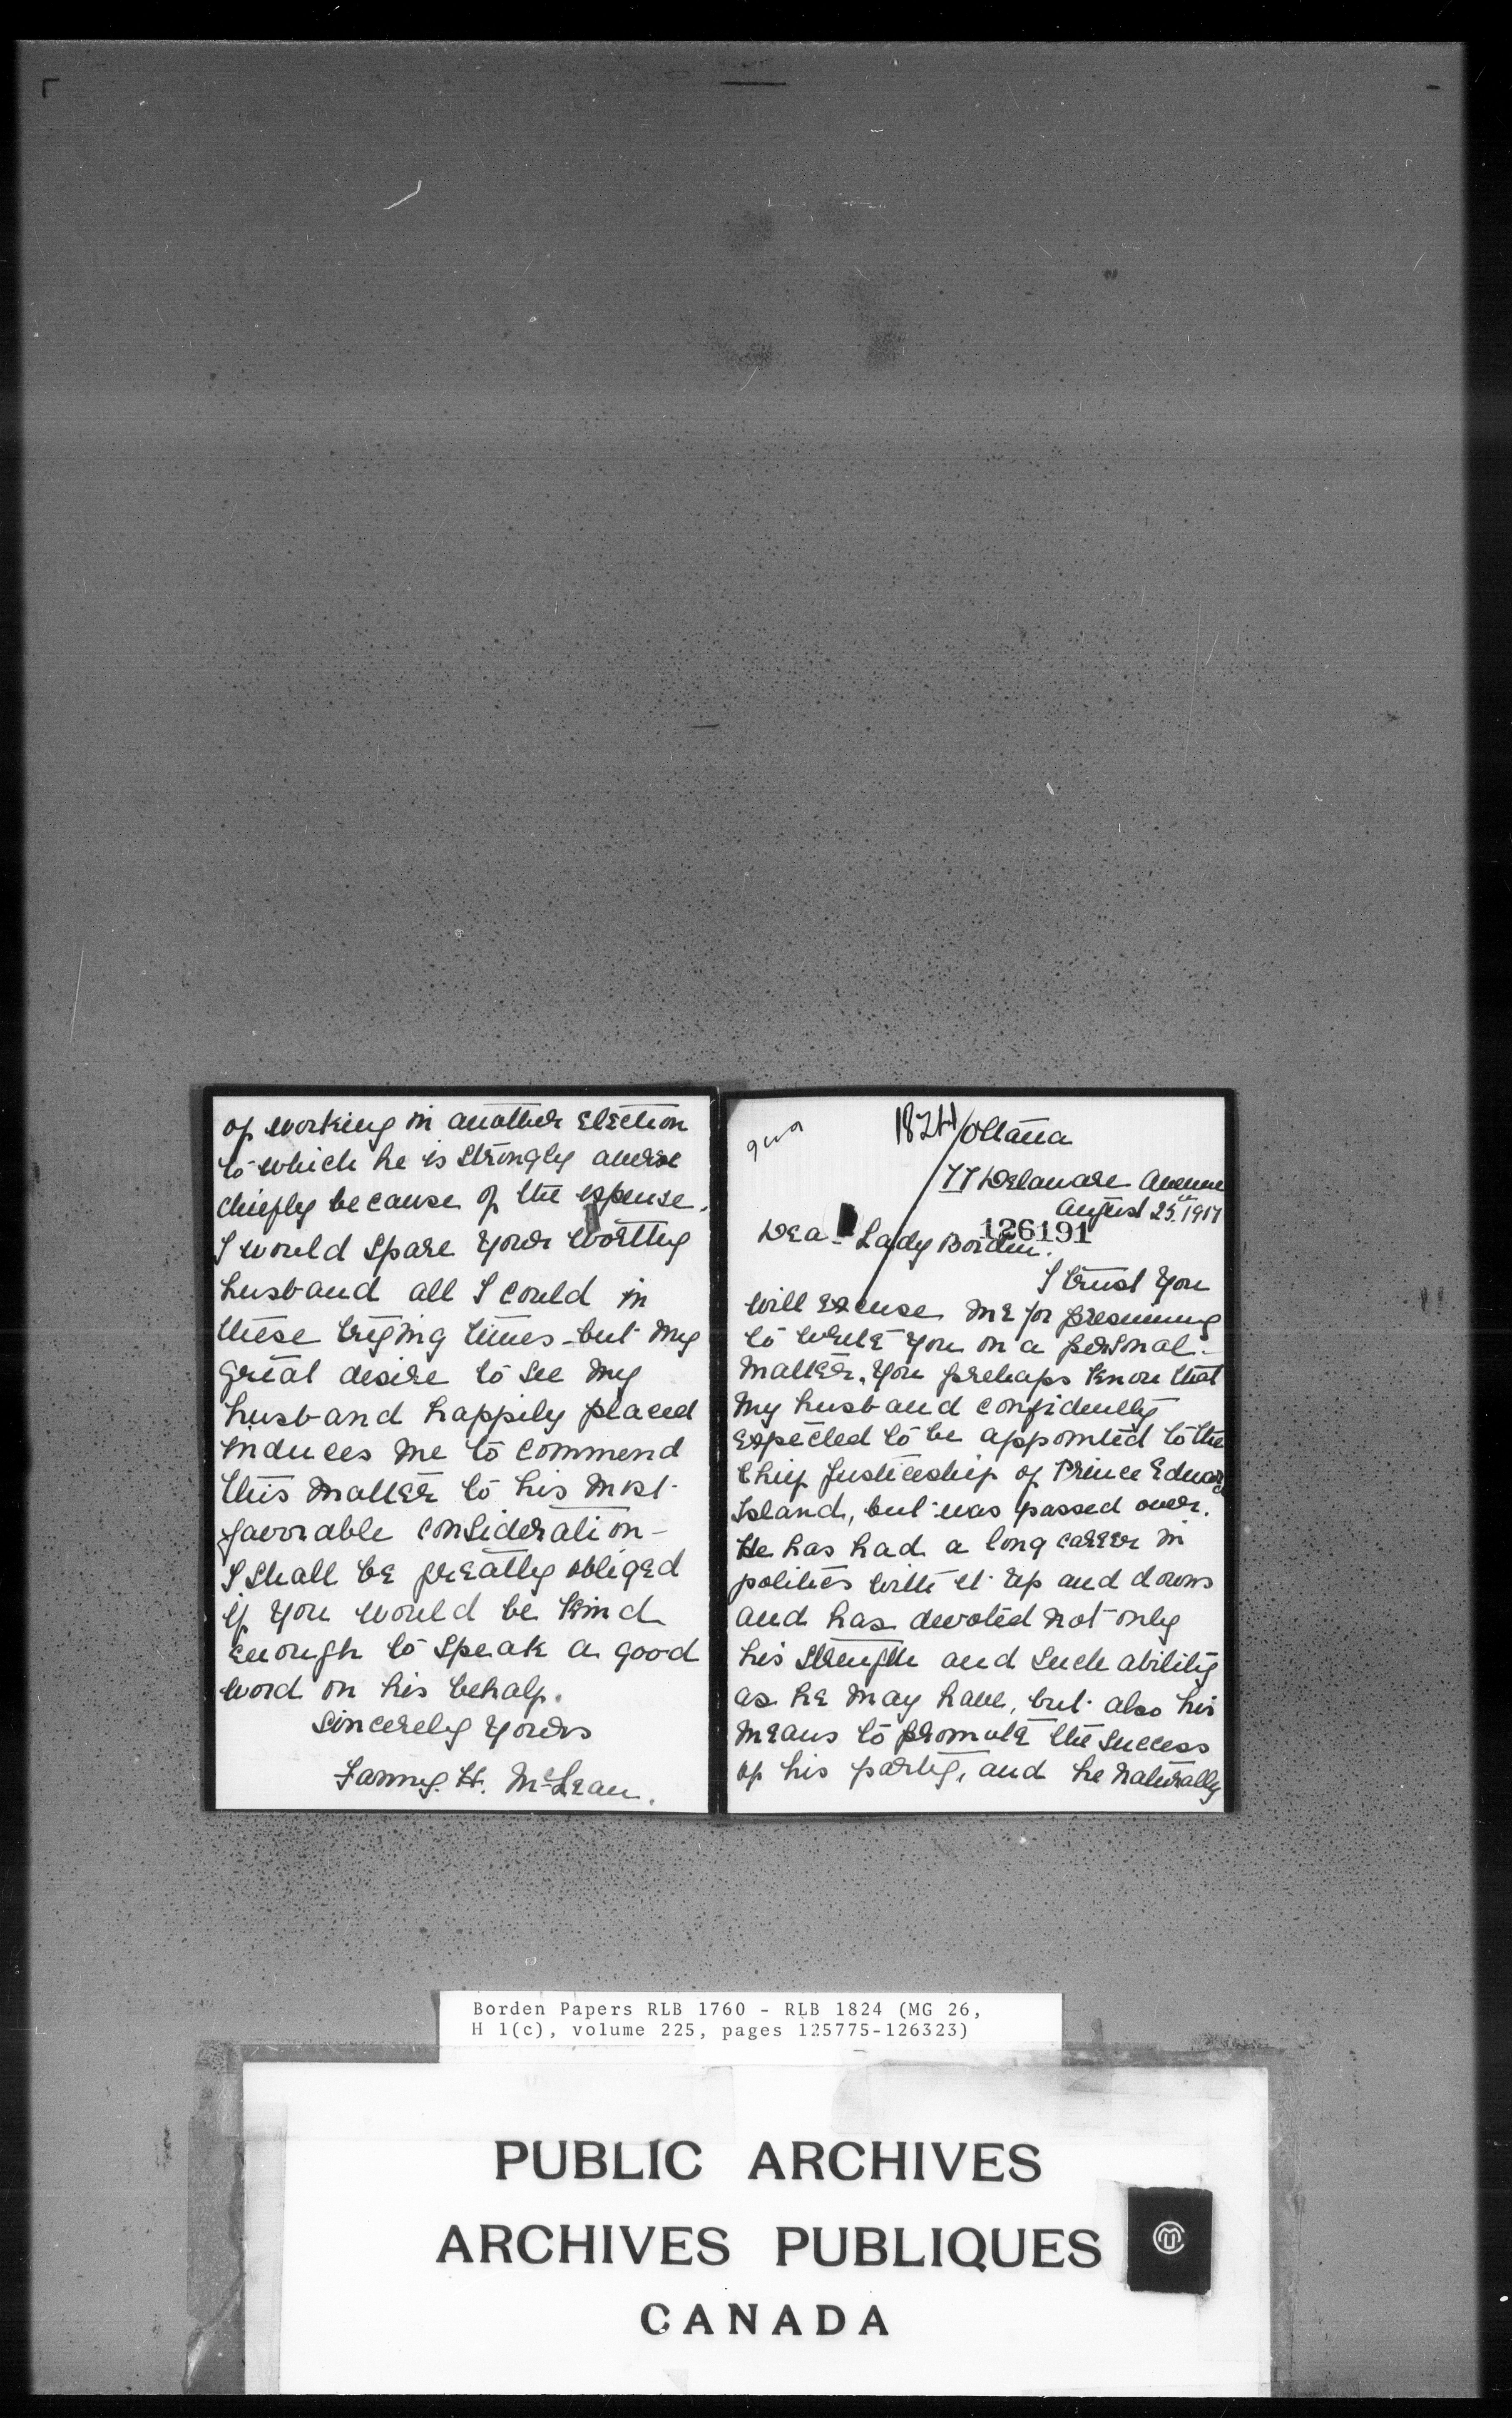 of working in another election
to which he is strongly averse
chiefly because of the expense.
I would spare your worthy
husband all I could in
these trying times - but my
great desire to see my
husband happily placed
induces me to commend
this matter to his most
favorable consideration -
I shall be greatly obliged
if you would be kind
enough to speak a good
word on his behalf.
Sincerely yours
Fanny. H. McLean.
1824
Ottawa
77 Delaware Avenue
August 25th. 1917
126191
Dear Lady Borden.
I trust you
will excuse me for presuming
to write you on a personal
matter. You prehaps know that
my husband confidently
expected to be appointed to the
Chief Justiceship of Prince Edward
Island, but was passed over.
He has had a long career in
politics with it up and downs
and has devoted not only
his strength and such ability
as he may have, but also his
means to promote the success
of his party, and he naturally
Borden Papers RLB 1760 - RLB 1824 (MG 26,
H 1(c), volume 225, pages 125775-126323)
PUBLIC ARCHIVES
ARCHIVES PUBLIQUES
CANADA